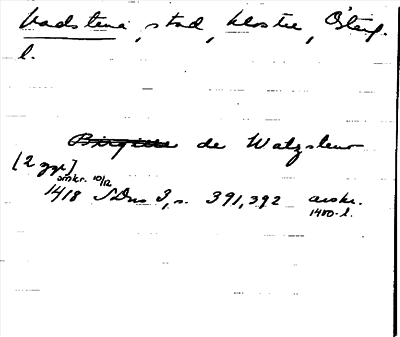 Vadstena, stad, kloster, Österg.
l.
Birgitta de Watzstena
[2 ggr]
omkr. 10/12
1418 SDns 3, s. 391, 392 avskr.
1400-t.